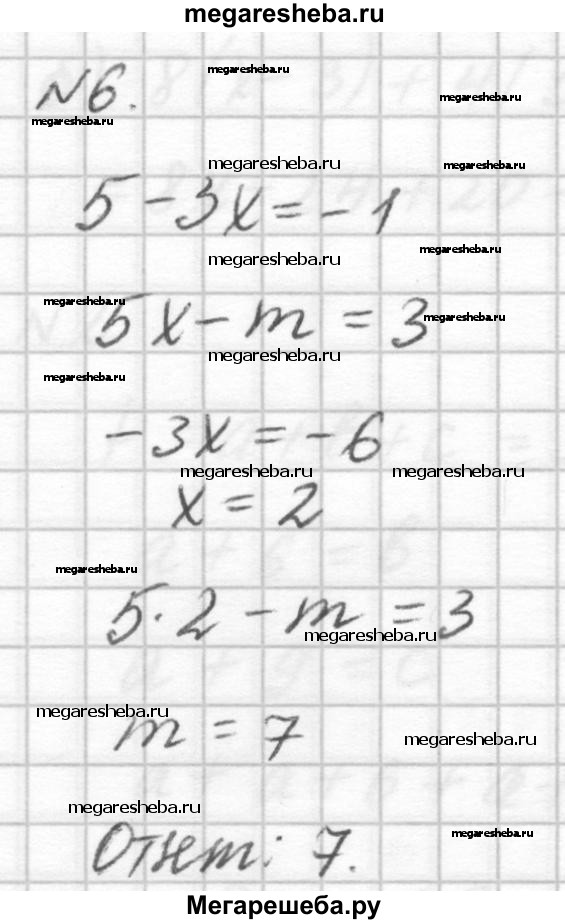 megaresheba.ru
№6. megaresheba.ru
megaresheba.ru
megaresheba.ru
megaresheba.ru megaresheba.ru
5 - 3x = -1
megaresheba.ru megaresheba.ru
megaresheba.ru
5x - m = 3 megaresheba.ru
megaresheba.ru
megaresheba.ru
-3x = -6
megaresheba.ru megaresheba.ru
x = 2
megaresheba.ru
5·2 - m = 3
megaresheba.ru
megaresheba.ru
m = 7 megaresheba.ru
megaresheba.ru
Ответ: 7. megaresheba.ru
Мегарешеба.ру